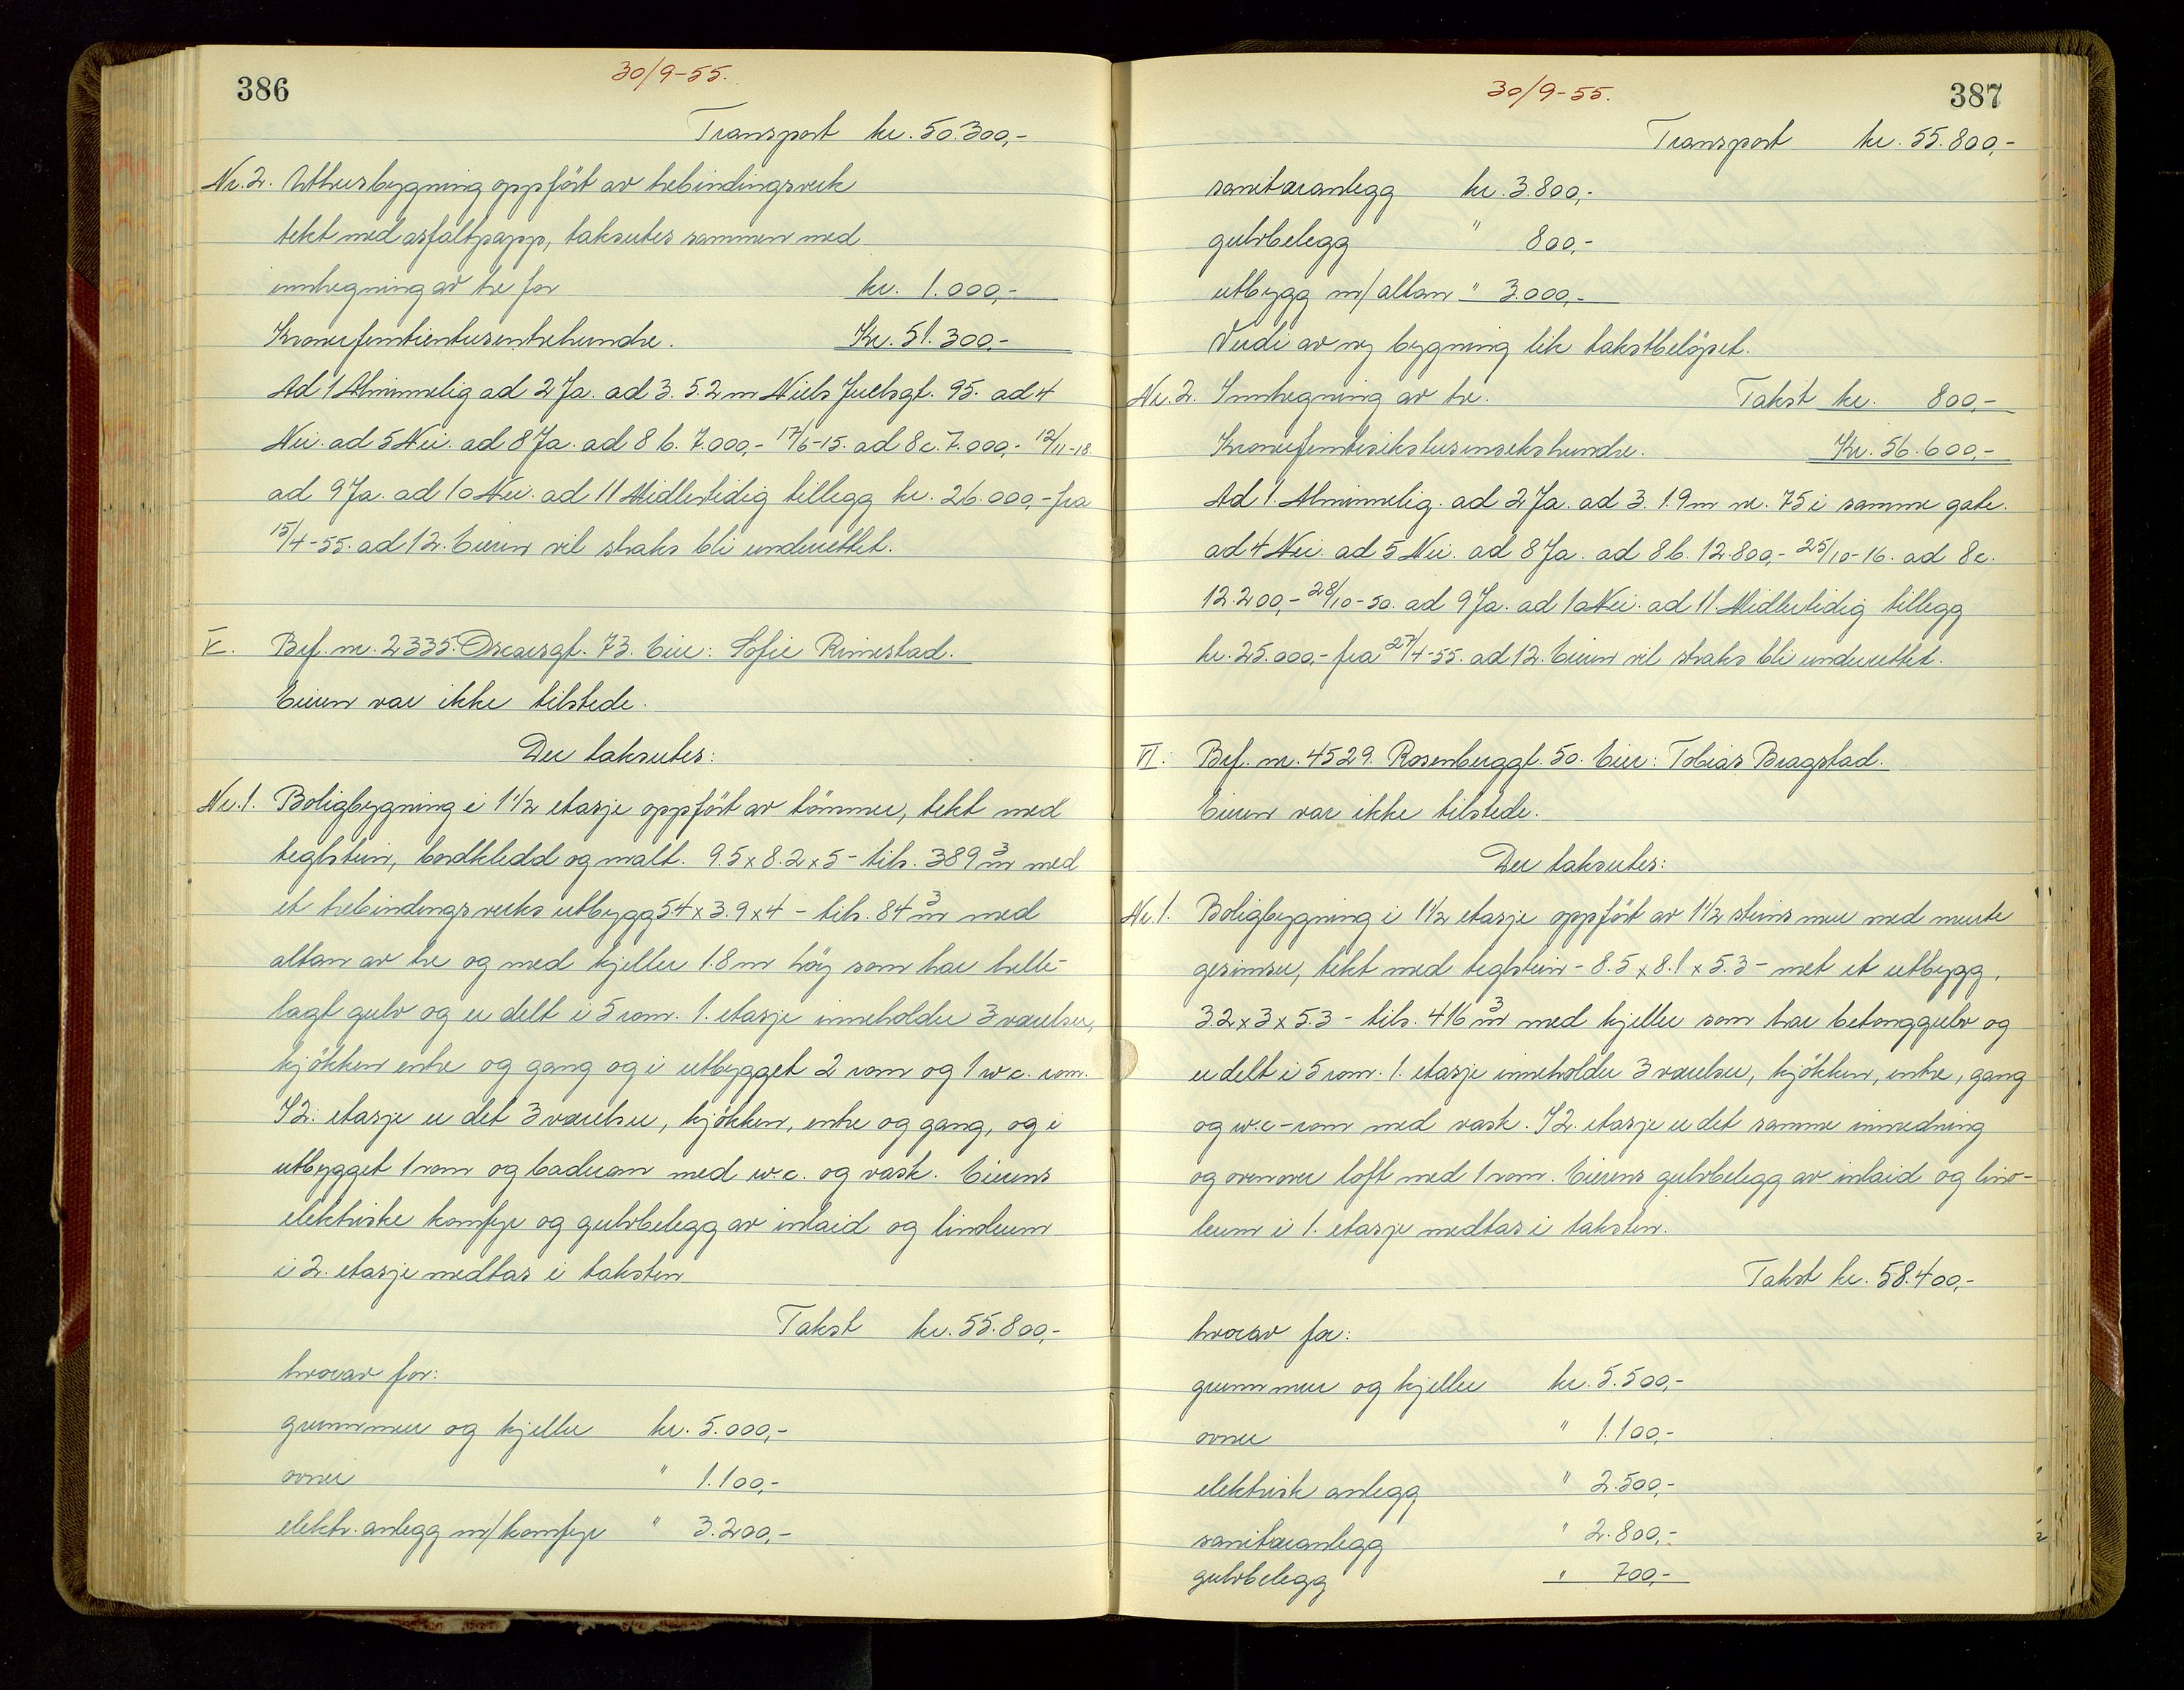 386
30/9-55.
Transport kr. 50.300,-
Nr. 2. Uthusbygning oppført av trebindingsverk
tekt med asfaltpapp, takseres sammen med
innhegning av tre for kr. 1.000,-
Kronerfemtientusentrehundre. Kr. 51.300,-
Ad 1 Alminnelig ad 2 Ja. ad 3. 5.2 m Niels Juelsgt. 95. ad 4
Nei. ad 5 Nei. ad 8 Ja. ad 8 b. 7.000,- 17/6-15. ad 8 c. 7.000,- 12/11-18.
ad 9 Ja. ad 10 Nei. ad 11 Midlertidig tillegg kr. 26.000,- fra
15/4-55. ad 12. Eieren vil straks bli underrettet.
V. Brf. nr. 2335. Oscarsgt. 73. Eier: Sofie Rimestad.
Eieren var ikke tilstede.
Der takseres:
Nr. 1. Boligbygning i 1 1/2 etasje oppført av tømmer, tekt med
teglstein, bordkledd og malt. 9.5 x 8.2 x 5 - tils. 389 m3 med
et trebindingsverks utbygg 5.4 x 3.9 x 4 - tils. 84 m3 med
altan av tre og med kjeller 1.8 m høy som har helle-
lagt gulv og er delt i 5 rom. 1. etasje inneholder 3 værelser,
kjøkken entre og gang og i utbygget 2 rom og 1 w.c. rom.
I 2. etasje er det 3 værelser, kjøkken, entre og gang, og i
utbygget 1 rom og baderom med w.c. og vask. Eierens
elektriske komfyr og gulvbelegg av inlaid og linoleum
i 2. etasje medtas i taksten
Takst kr. 55.800,-
hvorav for:
grunnmur og kjeller kr. 5.000,-
ovner " 1.100,-
elektr. anlegg m/komfyr " 3.200,-
387
30/9-55.
Transport kr. 55.800,-
sanitæranlegg kr. 3.800,-
gulvbelegg " 800,-
utbygg m/altan " 3.000,-
Verdi av ny bygning lik takstbeløpet.
Nr. 2. Innhegning av tre. Takst kr. 800,-
Kronerfemtisekstusensekshundre. Kr. 56.600,-
Ad 1. Alminnelig. ad 2 Ja. ad 3. 1.9 m nr. 75 i samme gate.
ad 4 Nei. ad 5 Nei. ad 8 Ja. ad 8 b. 12.800,- 25/10-16. ad 8 c.
12.200,- 28/10-50. ad 9 Ja. ad 10 Nei. ad 11. Midlertidig tillegg
kr. 25.000,- fra 27/4-55. ad 12. Eieren vil straks bli underrettet.
VI. Brf. nr. 4529. Rosenberggt. 50. Eier: Tobias Bragstad.
Eieren var ikke tilstede.
Der takseres:
Nr. 1. Boligbygning i 1 1/2 etasje oppført av 1 1/2 steins mur med murte
gesimser, tekt med teglstein - 8.5 x 8.1 x 5.3 - met et utbygg,
3.2 x 3 x 5.3 - tils. 416 m3 med kjeller som har betonggulv og
er delt i 5 rom. 1. etasje inneholder 3 værelser, kjøkken, entre, gang
og w.c-rom med vask. I 2. etasje er det samme innredning
og ovenover loft med 1 rom. Eierens gulvbelegg av inlaid og lino-
leum i 1. etasje medtas i taksten.
Takst kr. 58.400,-
hvorav for:
grunnmur og kjeller kr. 5.500,-
ovner " 1.100,-
elektrisk anlegg " 2.500,-
sanitæranlegg " 2.800,-
gulvbelegg " 700,-